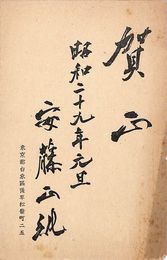 賀正
昭和二十九年元旦
安藤正
東京都台東區浅草松葉町二五